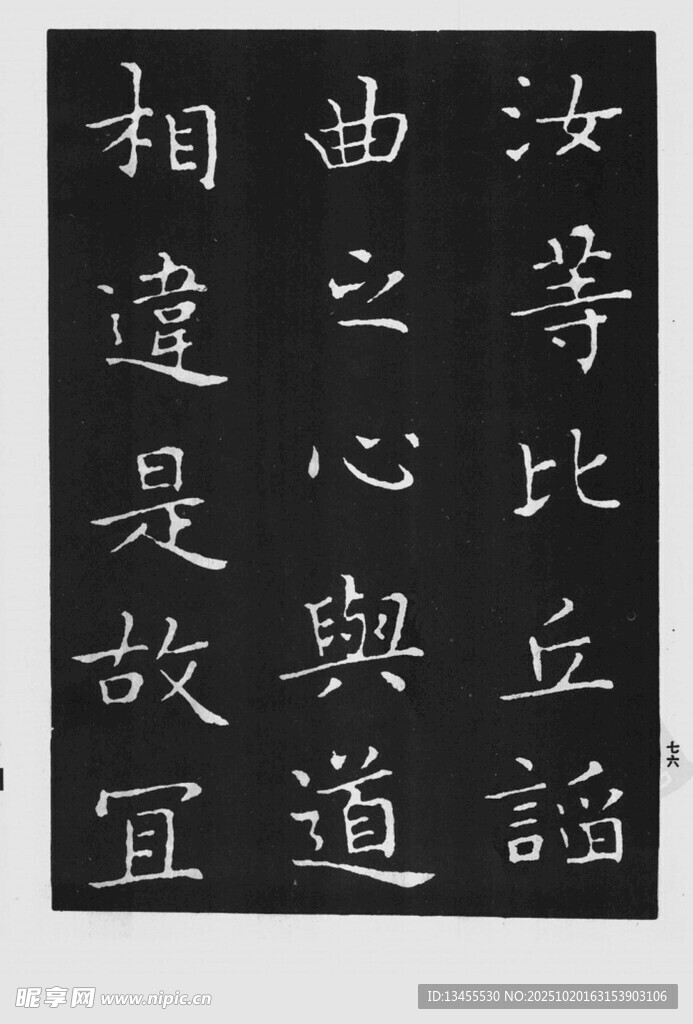 汝等比丘謟
曲之心與道
相違是故宜
七六
昵享网 www.nipic.cn
ID:13455530 NO:20251020163153903106